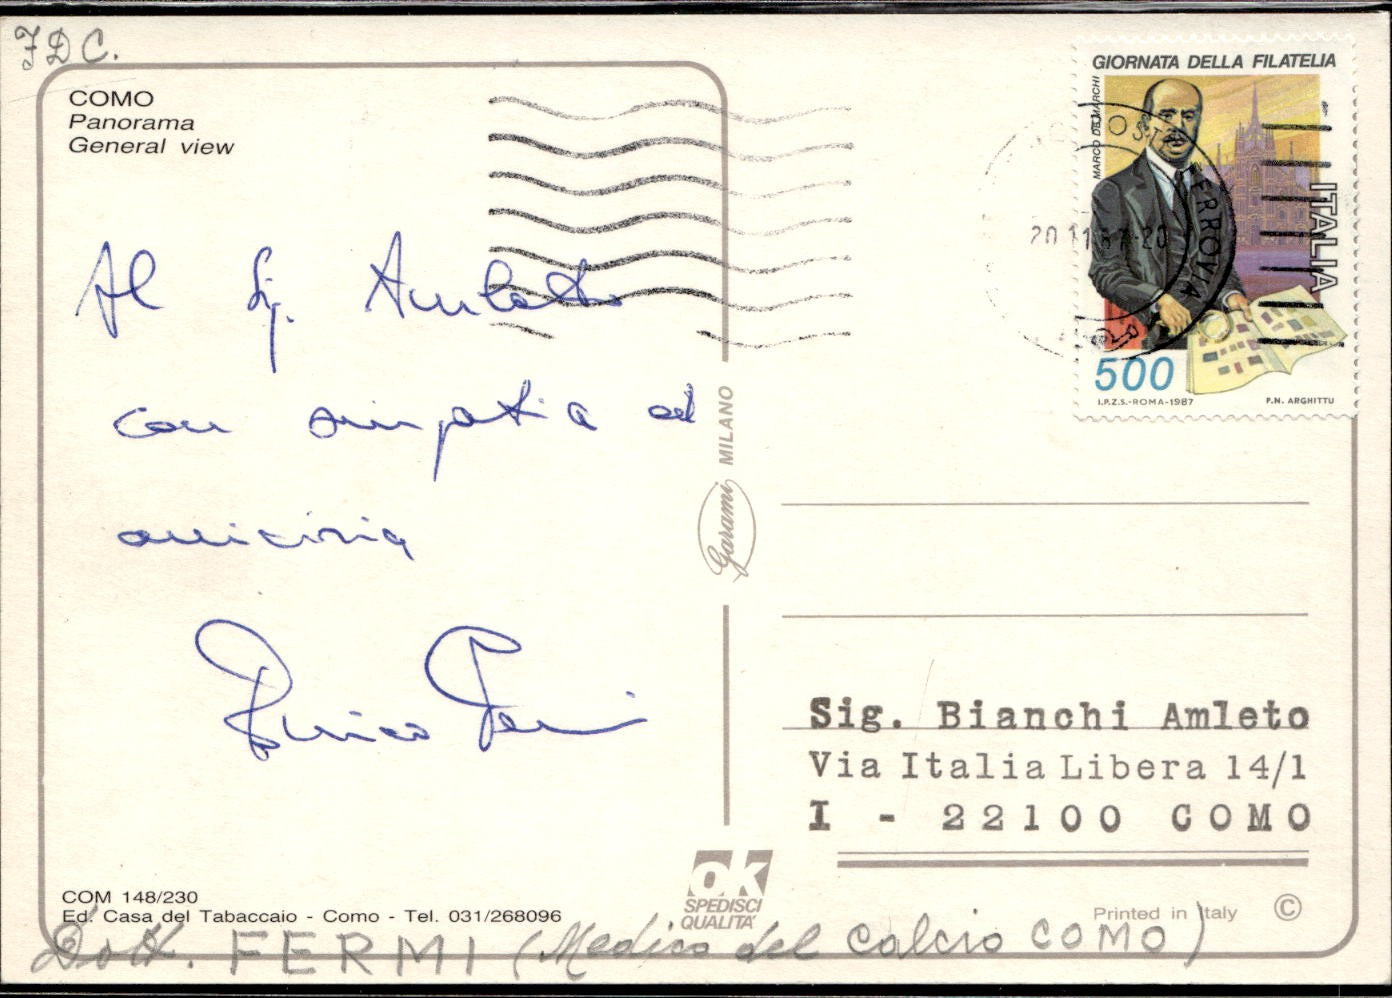 FDC.
COMO
Panorama
General view
Al Sig. Amleto
con simpatia ed
amicizia
Enrico Fermi
GIORNATA DELLA FILATELIA
MARCO DE MARCHI
ITALIA
500
I.P.Z.S.-ROMA-1987
P.N. ARGHITTU
FERROVIA
20 11 87-20
Garami MILANO
Sig. Bianchi Amleto
Via Italia Libera 14/1
I - 22100 COMO
ok
SPEDISCI
QUALITA'
COM 148/230
Ed. Casa del Tabaccaio - Como - Tel. 031/268096
Printed in Italy ©
Dott. FERMI (Medico del Calcio COMO)